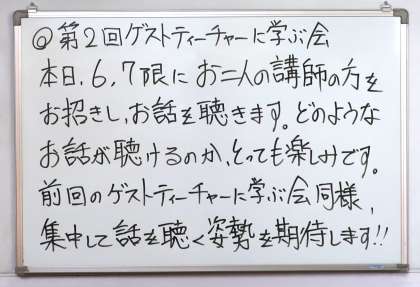 ◎第2回ゲストティーチャーに学ぶ会
本日、6,7限にお二人の講師の方を
お招きし、お話を聴きます。どのような
お話が聴けるのか、とっても楽しみです。
前回のゲストティーチャーに学ぶ会同様、
集中して話を聴く姿勢を期待します!!